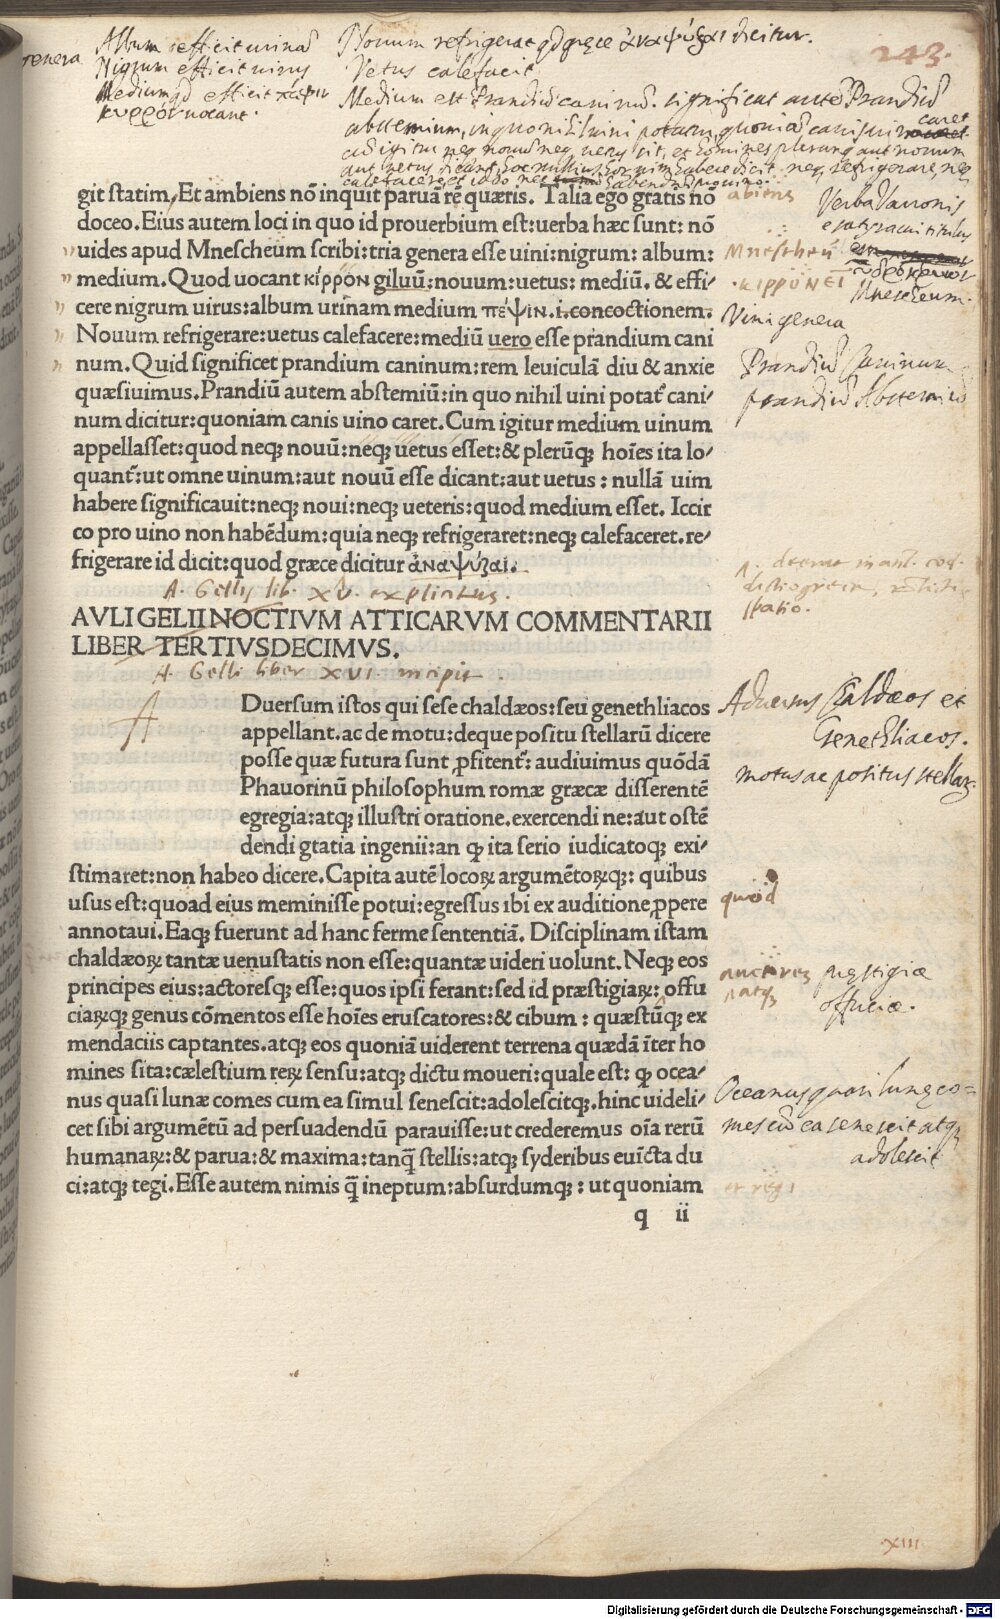 Album efficit urinã
Nigrum efficit uirus
Medium qd efficit πέψιν
κυρρόν uocant.
Nouum refrigerat qd gręce ἀναψύξαι dicitur.
Vetus calefacit
Medium est Prandiũ caninũ. significat autẽ Prandiũ
abstemium, in quo nihil uini potatur, quoniã canis uino caret
243.
git statim, Et ambiens nõ inquit parua rẽ quæris. Talia ego gratis nõ
doceo. Eius autem loci in quo id prouerbium est: uerba hæc sunt: nõ
uides apud Mnescheũm scribi: tria genera esse uini: nigrum: album:
medium. Quod uocant κίρρον giluũ: nouum: uetus: mediũ. & effi/
cere nigrum uirus: album urinam medium πέψιν. i. concoctionem.
Nouum refrigerare: uetus calefacere: mediũ uero esse prandium cani
num. Quid significet prandium caninum: rem leuiculã diu & anxie
quæsiuimus. Prandiũ autem abstemiũ: in quo nihil uini potat̃ cani/
num dicitur: quoniam canis uino caret. Cum igitur medium uinum
appellasset: quod neqꝫ nouũ: neqꝫ uetus esset: & plerũqꝫ hoĩes ita lo/
quant̃: ut omne uinum: aut nouũ esse dicant: aut uetus: nullã uim
habere significauit: neqꝫ noui: neqꝫ ueteris: quod medium esset. Iccir
co pro uino non habẽdum: quia neqꝫ refrigeraret: neqꝫ calefaceret. re/
frigerare id dicit: quod græce dicitur ἀναψύξαι.
A. Gellij lib. XV. explicitus.
AVLI GELII NOCTIVM ATTICARVM COMMENTARII
LIBER TERTIVSDECIMVS.
A. Gelli liber XVI incipit.
A
Duersum istos qui sese chaldæos: seu genethliacos
appellant. ac de motu: deque positu stellarũ dicere
posse quæ futura sunt ꝓfitent̃: audiuimus quõdã
Phauorinũ philosophum romæ græce disserentẽ
egregia: atqꝫ illustri oratione. exercendi ne: aut ostẽ
dendi gtatia ingenii: an ꝙ ita serio iudicatoqꝫ exi/
stimaret: non habeo dicere. Capita autẽ locoꝝ argumẽtoꝝqꝫ: quibus
usus est: quoad eius meminisse potui: egressus ibi ex auditione ꝓpere
annotaui. Eaqꝫ fuerunt ad hanc ferme sententiã. Disciplinam istam
chaldæoꝝ tantæ uenustatis non esse: quantæ uideri uolunt. Neqꝫ eos
principes eius: actoresqꝫ esse: quos ipsi ferant: sed id præstigiaꝝ: offu
ciaꝝqꝫ genus cõmentos esse hoĩes eruscatores: & cibum: quæstũqꝫ ex
mendaciis captantes. atqꝫ eos quoniã uiderent terrena quædã ĩter ho
mines sita: cælestium reꝝ sensu: atqꝫ dictu moueri: quale est: ꝙ ocea/
nus quasi lunæ comes cum ea simul senescit: adolescitqꝫ. hinc uideli/
cet sibi argumẽtũ ad persuadendũ parauisse: ut crederemus oĩa rerũ
humanaꝝ: & parua: & maxima: tanq̃ stellis: atqꝫ syderibus euĩcta du
ci: atqꝫ tegi. Esse autem nimis q̃ ineptum: absurdumqꝫ: ut quoniam
q ii
abiens
Verba Varronis
e satyra cui titulus
ὑδροκύων
Mnescheũ
Mnescheum.
κιρρον EI
Vini genera
Prandiũ Caninum
prandiũ Abstemiũ
Aduersus Chaldæos et
Genethliacos.
motus ac positus stellaꝝ.
quod
auctores
pręstigiæ
offuciæ.
Oceanus quasi lunę co=
mes cũ ea senescit atqꝫ
adolescit
et regi
XIII
Digitalisierung gefördert durch die Deutsche Forschungsgemeinschaft - DFG